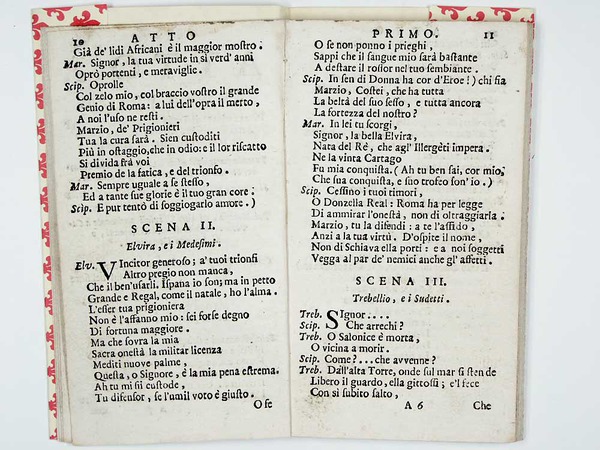 10 ATTO
Già de' lidi Africani è il maggior mostro.
Mar. Signor, la tua virtude in sì verd' anni
Oprò portenti, e meraviglie.
Scip. Oprolle
Col zelo mio, col braccio vostro il grande
Genio di Roma: a lui dell'opra il merto,
A noi l'uso ne resti.
Marzio, de' Prigionieri
Tua la cura sarà. Sien custoditi
Più in ostaggio, che in odio: e il lor riscatto
Si divida frà voi
Premio de la fatica, e del trionfo.
Mar. Sempre uguale a se stesso,
Ed a tante sue glorie è il tuo gran core.
Scip. E pur tentò di soggiogarlo amore.)
SCENA II.
Elvira, e i Medesimi.
Elv. VIncitor generoso; a' tuoi trionfi
Altro pregio non manca,
Che il ben'usarli. Ispana io son; ma in petto
Grande e Regal, come il natale, ho l'alma.
L'esser tua prigioniera
Non è l'affanno mio: sei forse degno
Di fortuna maggiore.
Ma che sovra la mia
Sacra onestà la militar licenza
Mediti nuove palme,
Questa, o Signore, è la mia pena estrema.
Ah tu mi sii custode,
Tu difensor, se l'umil voto è giusto.
O se
PRIMO. 11
O se non ponno i prieghi,
Sappi che il sangue mio sarà bastante
A destare il rossor nel tuo sembiante.
Scip. In sen di Donna ha cor d'Eroe!) chi sia
Marzio, Costei, che ha tutta
La beltà del suo sesso, e tutta ancora
La fortezza del nostro?
Mar. In lei tu scorgi,
Signor, la bella Elvira,
Nata del Rè, che agl' Illergèti impera.
Ne la vinta Cartago
Fu mia conquista. (Ah tu ben sai, cor mio,
Che sua conquista, e suo trofeo son' io.)
Scip. Cessino i tuoi rimori;
O Donzella Real: Roma ha per legge
Di ammirar l'onestà, non di oltraggiarla.
Marzio, tu la difendi: a te l'affido,
Anzi a la tua virtù. D'ospite il nome,
Non di Schiava ella porti: e a noi soggetti
Vegga al par de' nemici anche gl' affetti.
SCENA III.
Trebellio, e i Sudetti.
Treb. SIgnor....
Scip. Che arrechi?
Treb. O Salonice è morta,
O vicina a morir.
Scip. Come?... che avvenne?
Treb. Dall'alta Torre, onde sul mar si stende
Libero il guardo, ella gittossi; e'l fece
Con sì subito salto,
A 6 Che